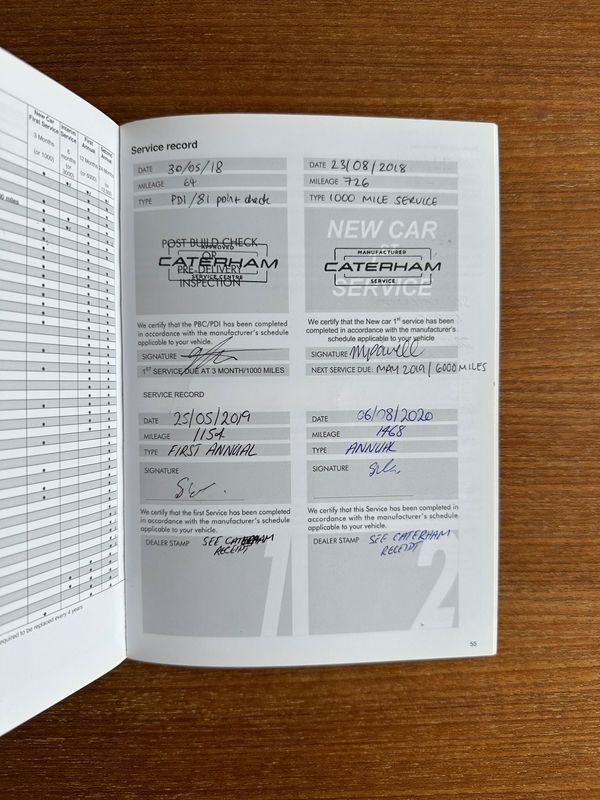 New Car
First Service
Interim
Service
First
Annual
Second
Annual
3 Months
6
months
12 Months
(or 1000)
(or 3000)
(or 6000)
miles
equired to be replaced every 4 years
Service record
DATE 30/05/18
MILEAGE 64
TYPE PDI/81 point check
POST BUILD CHECK
OR
PRE-DELIVERY
INSPECTION
APPROVED
CATERHAM
SERVICE CENTRE
We certify that the PBC/PDI has been completed
in accordance with the manufacturer's schedule
applicable to your vehicle.
SIGNATURE
1ST SERVICE DUE AT 3 MONTH/1000 MILES
DATE 23/08/2018
MILEAGE 726
TYPE 1000 MILE SERVICE
NEW CAR
1ST
SERVICE
MANUFACTURER
CATERHAM
SERVICE
We certify that the New car 1st service has been
completed in accordance with the manufacturer's
schedule applicable to your vehicle
SIGNATURE MPowell
NEXT SERVICE DUE: MAY 2019/6000 MILES
SERVICE RECORD
DATE 25/05/2019
MILEAGE 1154
TYPE FIRST ANNUAL
SIGNATURE
We certify that the first Service has been completed
in accordance with the manufacturer's schedule
applicable to your vehicle.
DEALER STAMP SEE CATERHAM
RECEIPT
1
DATE 06/08/2020
MILEAGE 1468
TYPE ANNUAL
SIGNATURE
We certify that this Service has been completed in
accordance with the manufacturer's schedule
applicable to your vehicle.
DEALER STAMP SEE CATERHAM
RECEIPT
2
55